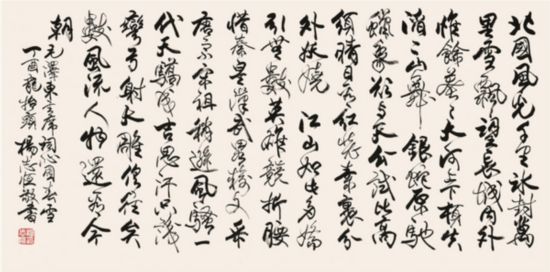 北國風光千里冰封萬
里雪飄望長城內外
惟餘莽々大河上下頓失
滔々山舞銀蛇原馳
蠟象欲與天公試比高
須晴日看紅裝素裹分
外妖嬈 江山如此多嬌
引無數英雄競折腰
惜秦皇漢武略輸文采
唐宗宋祖稍遜風騷一
代天驕成吉思汗只識
彎弓射大雕俱往矣
數風流人物還看今
朝 毛澤東主席詞沁園春雪
丁酉龍抬頭 楊志恆敬書